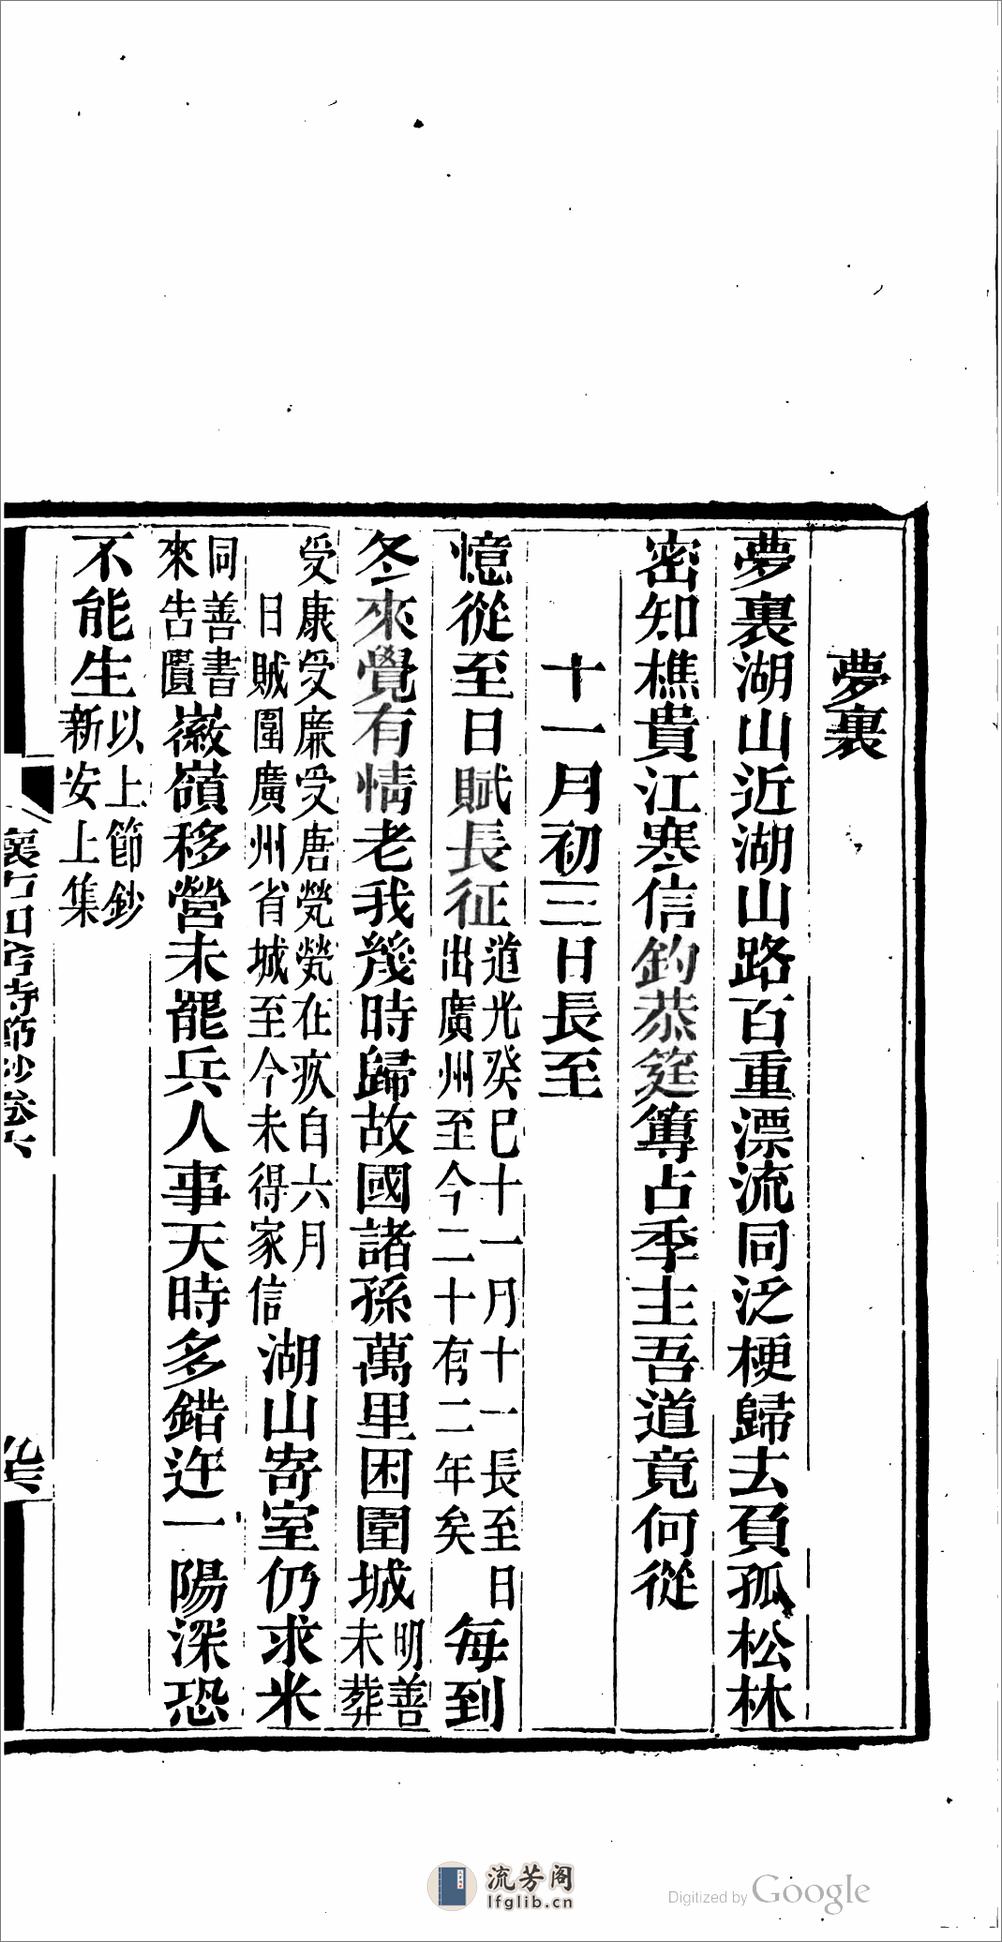 夢裏
夢裏湖山近湖山路百重漂流同泛梗歸去負孤松林
密知樵貴江寒信釣恭筳篿占季主吾道竟何從
十一月初三日長至
憶從至日賦長征道光癸巳十一月十一長至日出廣州至今二十有二年矣每到
冬來覺有情老我幾時歸故國諸孫萬里困圍城明善未葬
受康受廉受唐甇甇在疚自六月日賊圍廣州省城至今未得家信湖山寄室仍求米
同善書來告匱嶶嶺移營未罷兵人事天時多錯迕一陽深恐
不能生以上節鈔新安上集
流芳阁
lfglib.cn
Digitized by Google